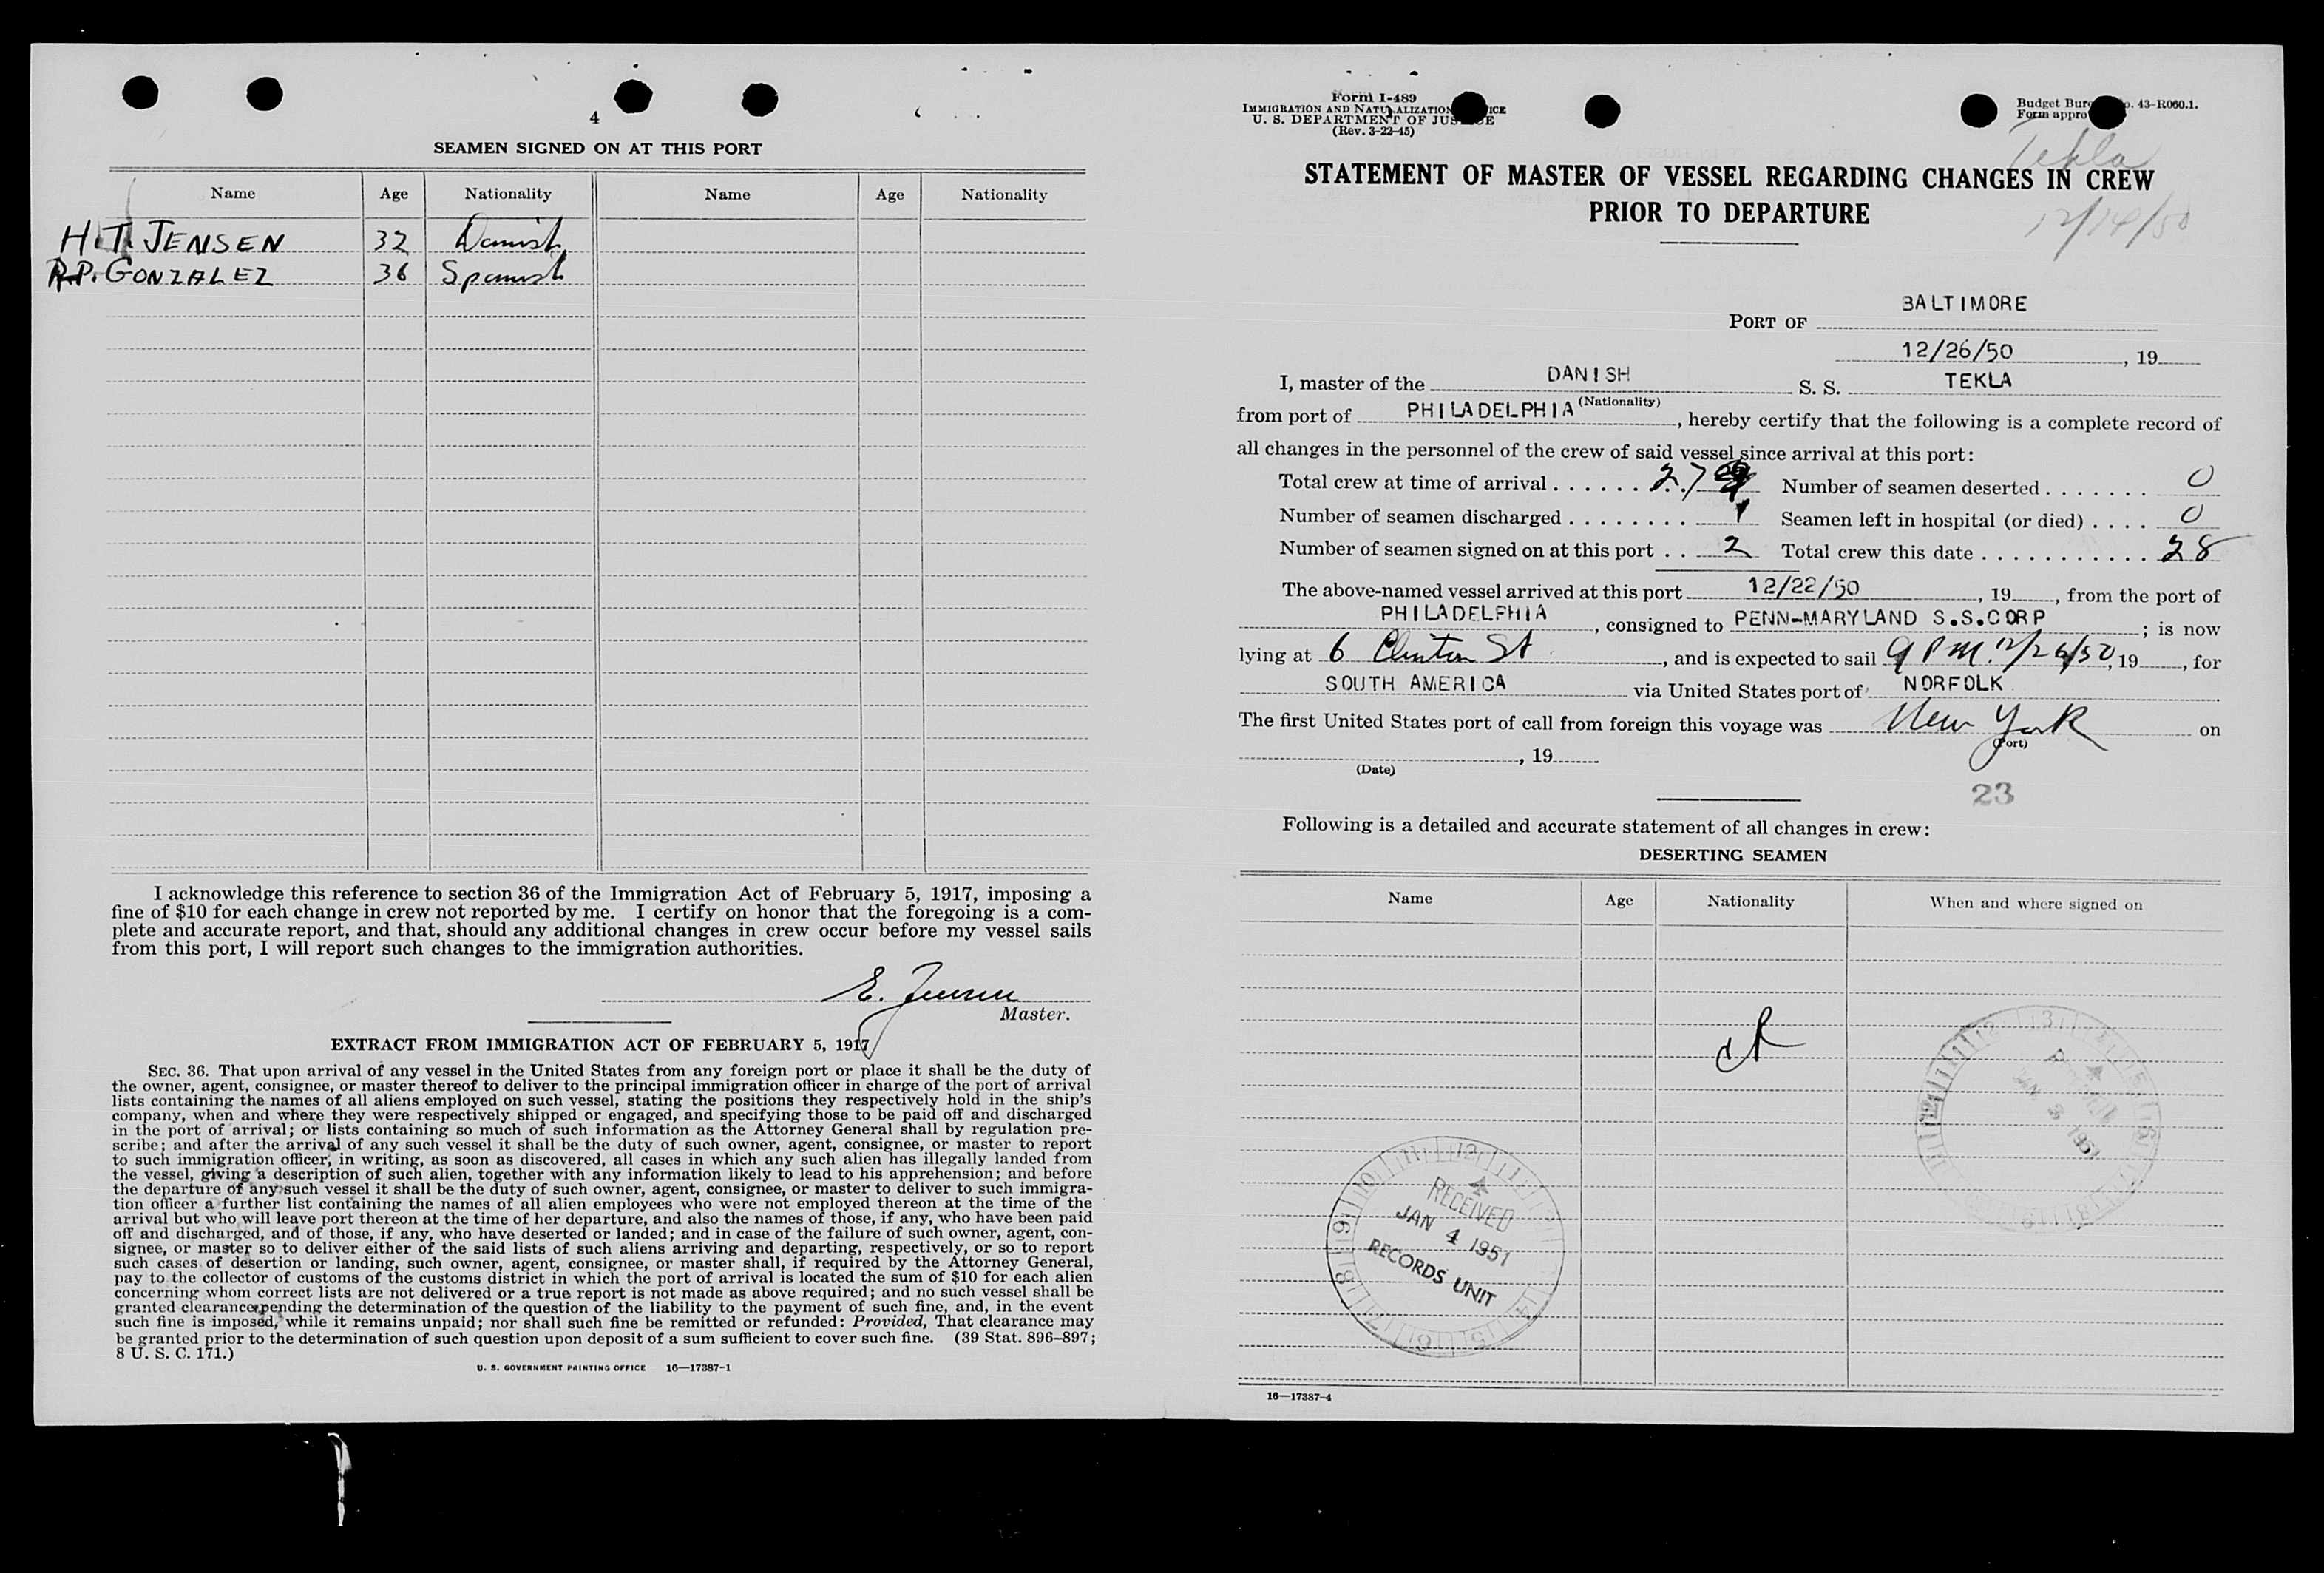 4
SEAMEN SIGNED ON AT THIS PORT
Name Age Nationality Name Age Nationality
H.T. JENSEN 32 Danish
R.P. GONZALEZ 36 Spanish
I acknowledge this reference to section 36 of the Immigration Act of February 5, 1917, imposing a
fine of $10 for each change in crew not reported by me. I certify on honor that the foregoing is a com-
plete and accurate report, and that, should any additional changes in crew occur before my vessel sails
from this port, I will report such changes to the immigration authorities.
E. Jensen
Master.
EXTRACT FROM IMMIGRATION ACT OF FEBRUARY 5, 1917
SEC. 36. That upon arrival of any vessel in the United States from any foreign port or place it shall be the duty of
the owner, agent, consignee, or master thereof to deliver to the principal immigration officer in charge of the port of arrival
lists containing the names of all aliens employed on such vessel, stating the positions they respectively hold in the ship's
company, when and where they were respectively shipped or engaged, and specifying those to be paid off and discharged
in the port of arrival; or lists containing so much of such information as the Attorney General shall by regulation pre-
scribe; and after the arrival of any such vessel it shall be the duty of such owner, agent, consignee, or master to report
to such immigration officer, in writing, as soon as discovered, all cases in which any such alien has illegally landed from
the vessel, giving a description of such alien, together with any information likely to lead to his apprehension; and before
the departure of any such vessel it shall be the duty of such owner, agent, consignee, or master to deliver to such immigra-
tion officer a further list containing the names of all alien employees who were not employed thereon at the time of the
arrival but who will leave port thereon at the time of her departure, and also the names of those, if any, who have been paid
off and discharged, and of those, if any, who have deserted or landed; and in case of the failure of such owner, agent, con-
signee, or master so to deliver either of the said lists of such aliens arriving and departing, respectively, or so to report
such cases of desertion or landing, such owner, agent, consignee, or master shall, if required by the Attorney General,
pay to the collector of customs of the customs district in which the port of arrival is located the sum of $10 for each alien
concerning whom correct lists are not delivered or a true report is not made as above required; and no such vessel shall be
granted clearance pending the determination of the question of the liability to the payment of such fine, and, in the event
such fine is imposed, while it remains unpaid; nor shall such fine be remitted or refunded: Provided, That clearance may
be granted prior to the determination of such question upon deposit of a sum sufficient to cover such fine. (39 Stat. 896–897;
8 U. S. C. 171.)
U. S. GOVERNMENT PRINTING OFFICE 16—17387-1
Form I-489
IMMIGRATION AND NATURALIZATION SERVICE
U. S. DEPARTMENT OF JUSTICE
(Rev. 3-22-45)
Budget Bureau No. 43-R060.1.
Form approved
Tekla
STATEMENT OF MASTER OF VESSEL REGARDING CHANGES IN CREW
PRIOR TO DEPARTURE
12/14/50
PORT OF BALTIMORE
12/26/50, 19
I, master of the DANISH S. S. TEKLA
(Nationality)
from port of PHILADELPHIA, hereby certify that the following is a complete record of
all changes in the personnel of the crew of said vessel since arrival at this port:
Total crew at time of arrival . . . . . . 27 Number of seamen deserted . . . . . . . 0
Number of seamen discharged . . . . . . . . 1 Seamen left in hospital (or died) . . . . 0
Number of seamen signed on at this port . . 2 Total crew this date . . . . . . . . . . . 28
The above-named vessel arrived at this port 12/22/50, 19, from the port of
PHILADELPHIA, consigned to PENN-MARYLAND S.S.CORP; is now
lying at 6 Clinton St, and is expected to sail 9 PM. 12/26/50, 19, for
SOUTH AMERICA via United States port of NORFOLK
The first United States port of call from foreign this voyage was New York on
(Port)
, 19
(Date)
23
Following is a detailed and accurate statement of all changes in crew:
DESERTING SEAMEN
Name Age Nationality When and where signed on
RECEIVED
JAN 4 1951
RECORDS UNIT
JAN 3 1951
16—17387-4